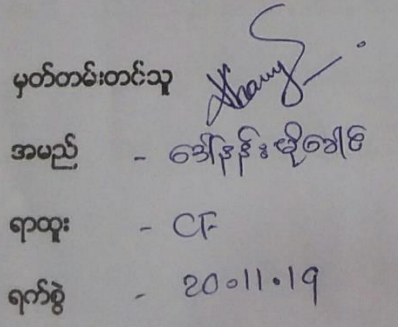 မှတ်တမ်းတင်သူ
အမည် - ဒေါ်နန်းမိုခေါင်
ရာထူး - CF
ရက်စွဲ - 20.11.19